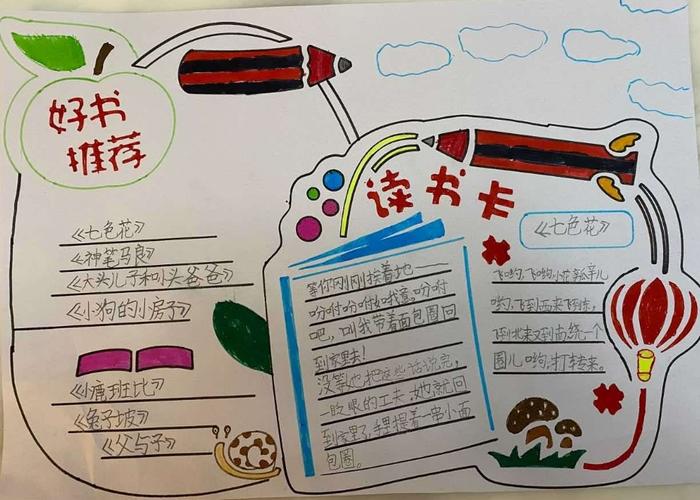 好书
推荐
《七色花》
《神笔马良》
《大头儿子和小头爸爸》
《小狗的小房子》
《小鹿班比》
《兔子坡》
《父与子》
读书卡
等你刚刚挨着地——
吩咐吩咐如我意,吩咐
吧,叫我带着面包圈回
到家里去!
没等他把这些话说完,
一眨眼的工夫,她就回
到家里了,手里提着一串小面
包圈。
《七色花》
飞哟,飞哟,小花瓣儿
哟,飞到西来飞到东,
飞到北来又到南,绕一个
圈儿哟,打转来。